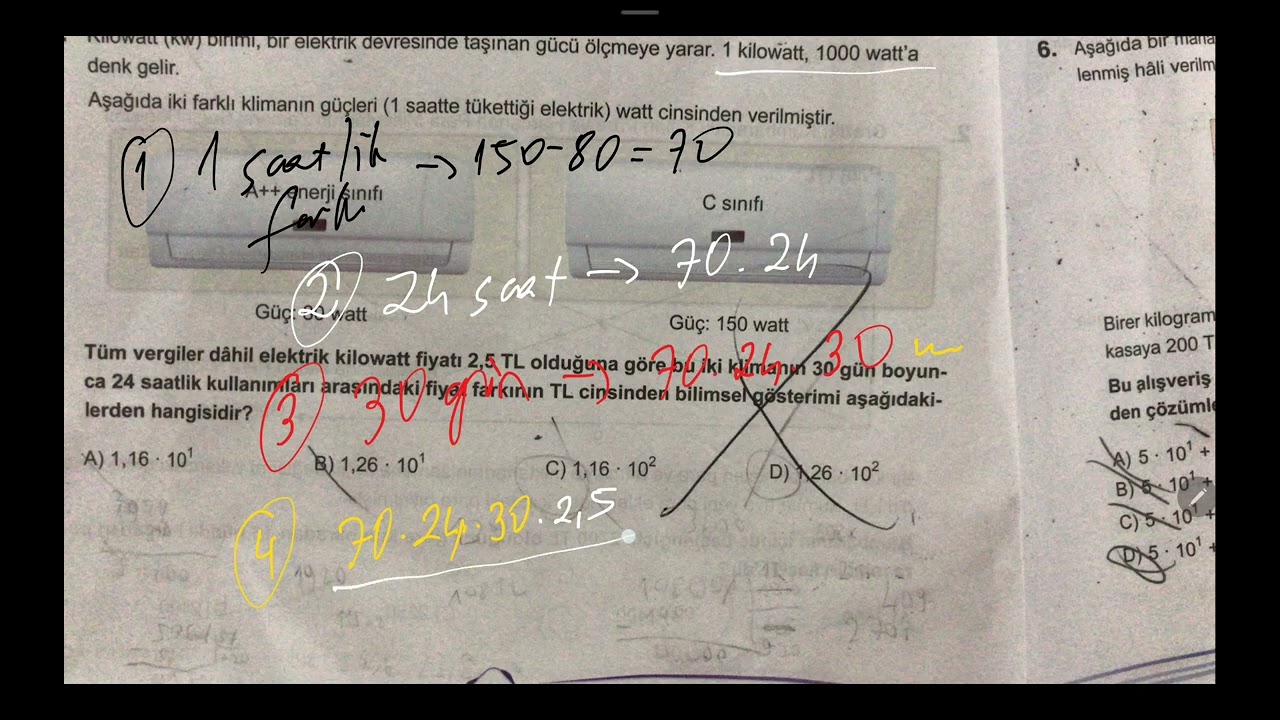 Kilowatt (kw) birimi, bir elektrik devresinde taşınan gücü ölçmeye yarar. 1 kilowatt, 1000 watt'a
denk gelir.
Aşağıda iki farklı klimanın güçleri (1 saatte tükettiği elektrik) watt cinsinden verilmiştir.
1 1 saatlik → 150-80=70
farkı
A++ enerji sınıfı
C sınıfı
2 24 saat → 70.24
Güç: 80 watt
Güç: 150 watt
Tüm vergiler dâhil elektrik kilowatt fiyatı 2,5 TL olduğuna göre bu iki klimanın 30 gün boyun-
ca 24 saatlik kullanımları arasındaki fiyat farkının TL cinsinden bilimsel gösterimi aşağıdaki-
lerden hangisidir?
3 30 gün → 70.24.30
A) 1,16 · 10¹
B) 1,26 · 10¹
C) 1,16 · 10²
D) 1,26 · 10²
4 70.24.30.2,5
6. Aşağıda bir
lenmiş hâli
Birer kilogram
kasaya 200 T
Bu alışveriş
den
A) 5 · 10¹ +
B) 5 · 10¹ +
C) 5 · 10¹ +
D) 5 · 10¹ +